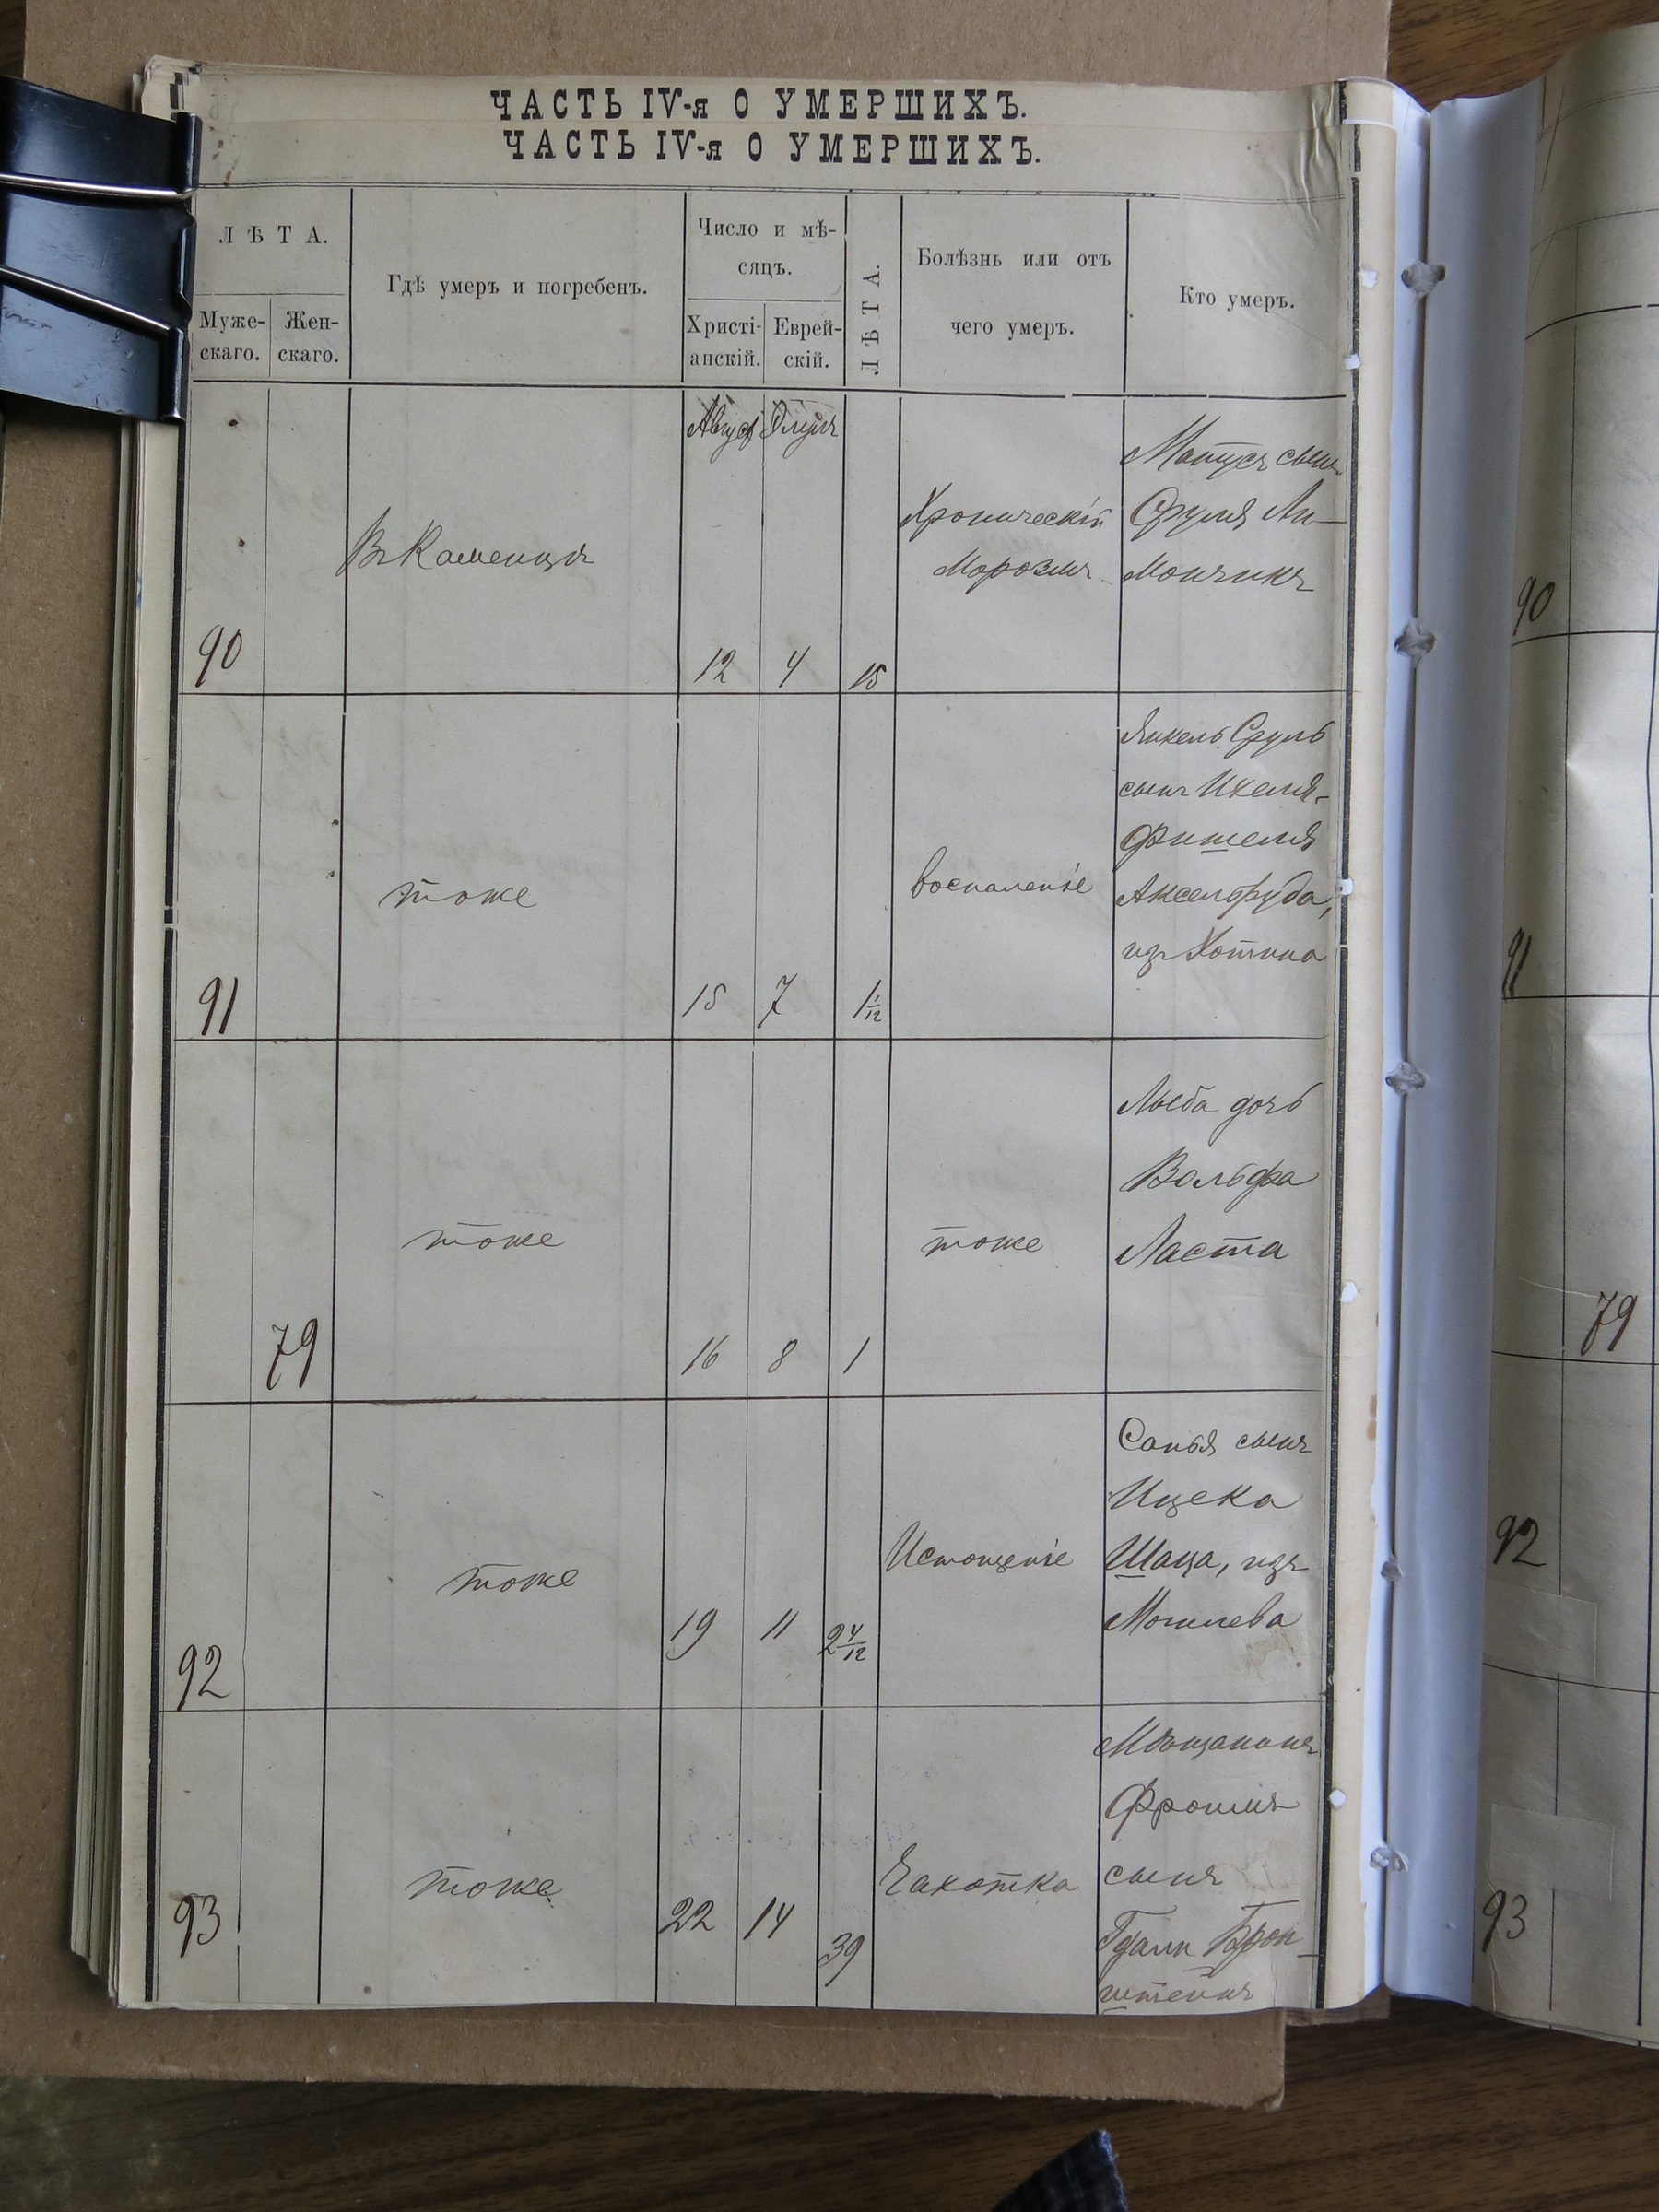 ЧАСТЬ IV-я О УМЕРШИХЪ.
ЧАСТЬ IV-я О УМЕРШИХЪ.
ЛѢТА.
Муже-
скаго.
Жен-
скаго.
Гдѣ умеръ и погребенъ.
Число и мѣ-
сяцъ.
Христі-
анскій.
Еврей-
скій.
ЛѢТА.
Болѣзнь или отъ
чего умеръ.
Кто умеръ.
Август Элулъ
90
Въ Каменцѣ
12
4
15
Хроническій
Мотусъ сынъ
Сруля Ли-
мончикъ
91
тоже
15
7
1 1/12
воспаленіе
Янкель Сруль
сынъ Ихеля-
Фишеля
Аксельруда,
изъ Хотина
79
тоже
16
8
1
тоже
Люба дочь
Вольфа
Ласта
92
тоже
19
11
2 4/12
Истощеніе
сынъ
Ицека
Шаца, изъ
Могилева
93
тоже
22
14
39
Чахотка
Мѣщанинъ
Фроимъ
сынъ
Гдали Брон-
штейнъ
90
91
79
92
93